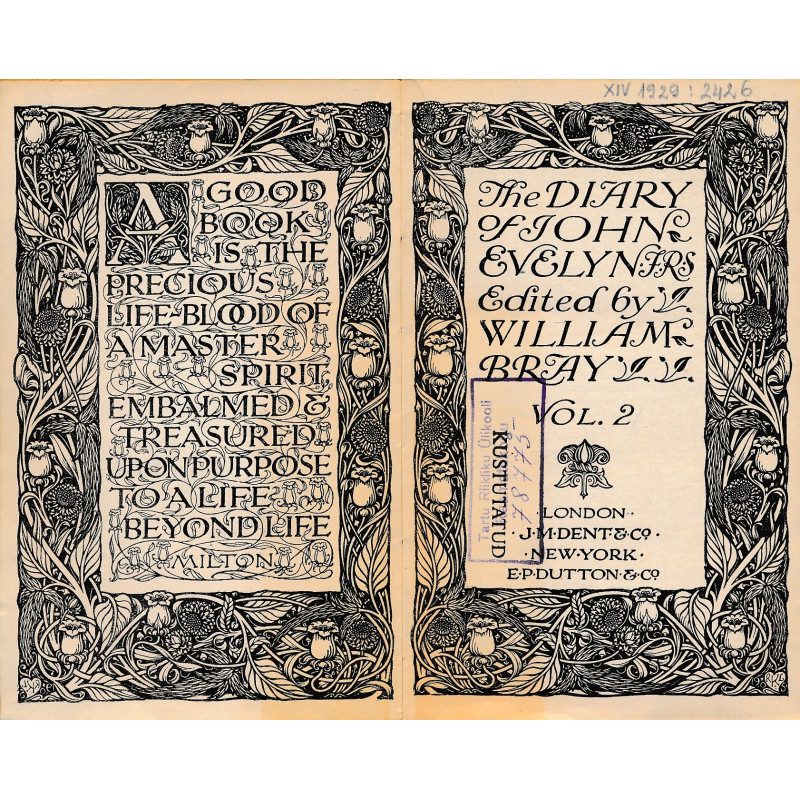 A GOOD
BOOK
IS THE
PRECIOUS
LIFE-BLOOD OF
A MASTER
SPIRIT,
EMBALMED &
TREASURED
UPON PURPOSE
TO A LIFE
BEYOND LIFE
MILTON
XIV 1929 : 2426
The DIARY
of JOHN
EVELYN F.R.S
Edited by
WILLIAM
BRAY
VOL. 2
Tartu Riikliku Ülikooli
78775-
KUSTUTATUD
·LONDON·
·J·M·DENT·&·Cº·
·NEW·YORK·
E·P·DUTTON·&·Cº